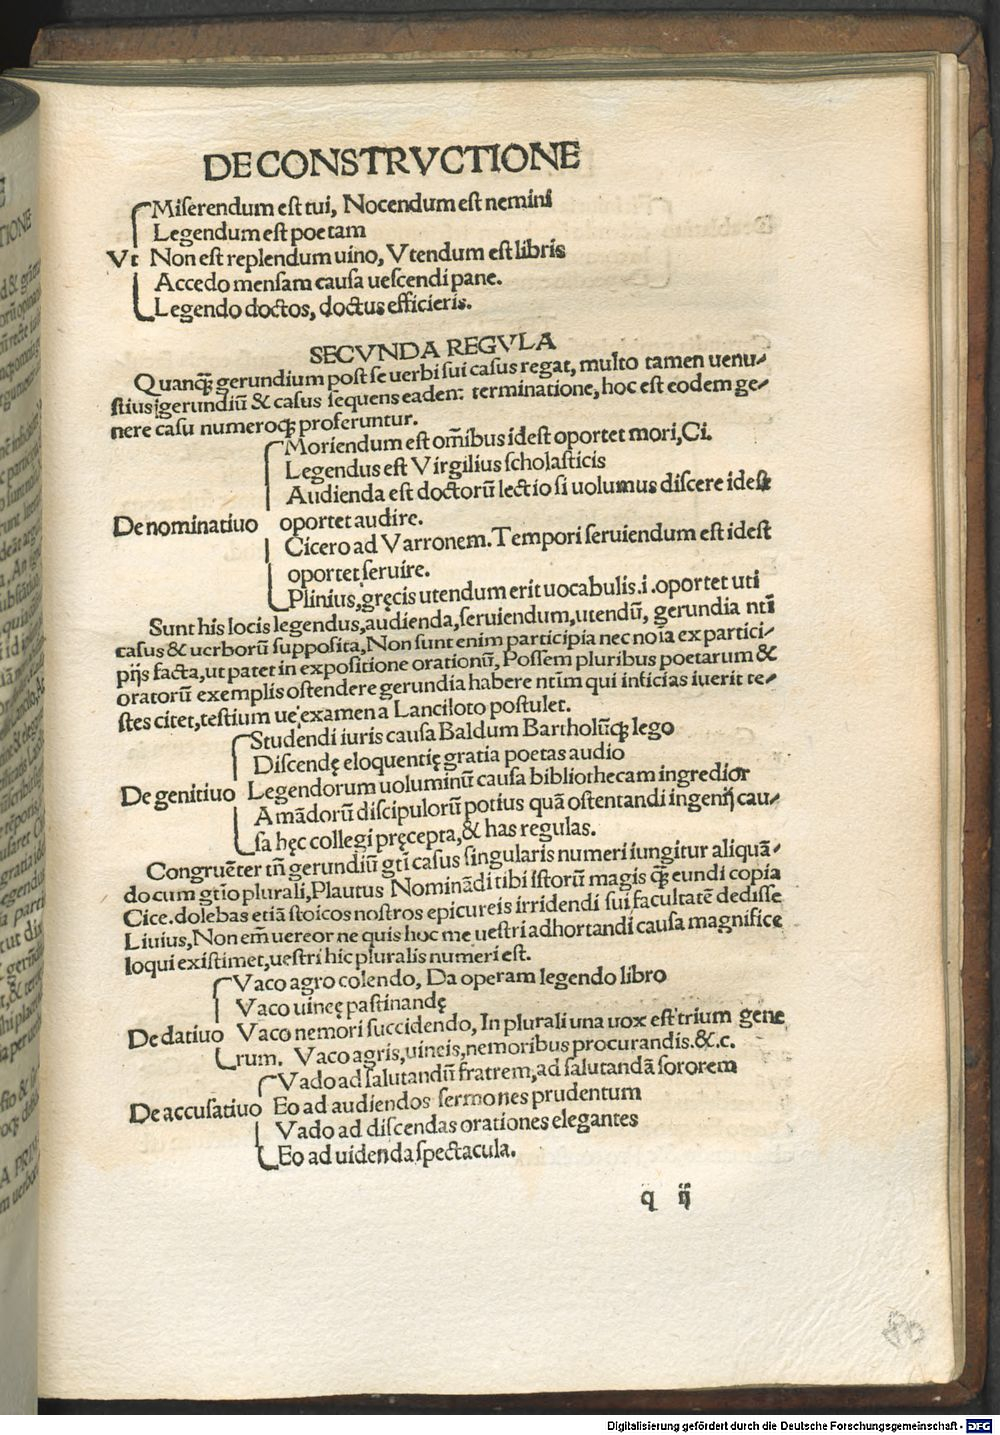 DE CONSTRVCTIONE
Miserendum est tui, Nocendum est nemini
Legendum est poetam
Vt Non est replendum uino, Vtendum est libris
Accedo mensam causa uescendi pane.
Legendo doctos, doctus efficieris.
SECVNDA REGVLA
Quanꝙ gerundium post se uerbi sui casus regat, multo tamen uenu-
stius gerundiū & casus sequens eadem terminatione, hoc est eodem ge-
nere casu numeroqꝫ proferuntur.
Moriendum est om̄ibus idest oportet mori, Ci.
Legendus est Virgilius scholasticis
Audienda est doctorū lectio si uolumus discere idest
De nominatiuo oportet audire.
Cicero ad Varronem. Tempori seruiendum est idest
oportet seruire.
Plinius, gręcis utendum erit uocabulis .i. oportet uti
Sunt his locis legendus, audienda, seruiendum, utendū, gerundia nti
casus & uerborū supposita, Non sunt enim participia nec noīa ex partici-
pijs facta, ut patet in expositione orationū, Possem pluribus poetarum &
oratorū exemplis ostendere gerundia habere ntīm qui inficias iuerit te-
stes citet, testium ue examen a Lanciloto postulet.
Studendi iuris causa Baldum Bartholūqꝫ lego
Discendę eloquentię gratia poetas audio
De genitiuo Legendorum uoluminū causa bibliothecam ingredior
Amādorū discipulorū potius quā ostentandi ingenij cau-
sa hęc collegi pręcepta, & has regulas.
Congruēter tn̄ gerundiū gtī casus singularis numeri iungitur aliquā-
do cum gtīo plurali, Plautus Nominādi tibi istorū magis ꝙ eundi copia
Cice. dolebas etiā stoicos nostros epicureis irridendi sui facultatē dedisse
Liuius, Non em̄ uereor ne quis hoc me uestri adhortandi causa magnifice
loqui existimet, uestri hic pluralis numeri est.
Vaco agro colendo, Da operam legendo libro
Vaco uineę pastinandę
De datiuo Vaco nemori succidendo, In plurali una uox est trium gene
rum. Vaco agris, uineis, nemoribus procurandis. &.c.
Vado ad salutandū fratrem, ad salutandā sororem
De accusatiuo Eo ad audiendos sermones prudentum
Vado ad discendas orationes elegantes
Eo ad uidenda spectacula.
q ij
Digitalisierung gefördert durch die Deutsche Forschungsgemeinschaft - DFG